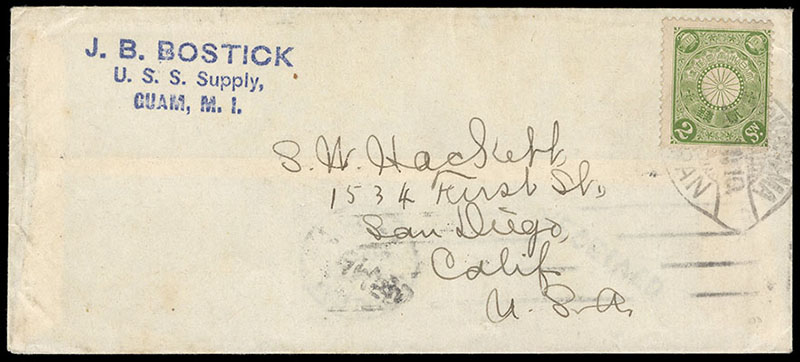 J. B. BOSTICK
U. S. S. Supply,
GUAM, M. I.
2 Sn.
S. W. Hackett,
1534 First St.,
San Diego,
Calif
U. S. A.